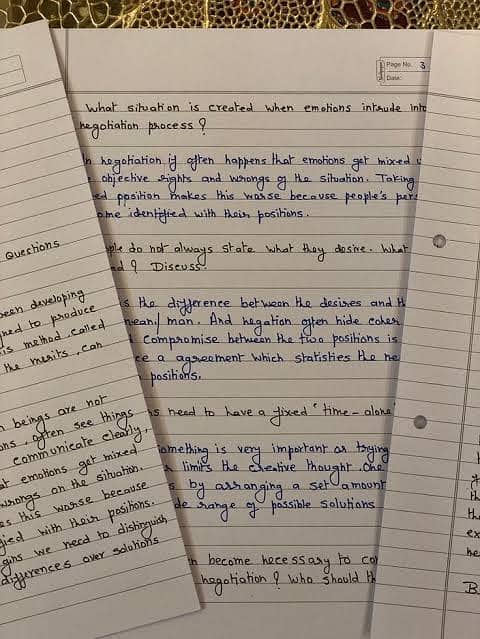 Page No. 3
Date:
What situation is created when emotions intrude into
negotiation process?
In hegotiation if often happens that emotions get mixed
objective rights and wrongs of the situation. Taking
pposition makes this worse because people's
identified with their positions.
do not always state what they desire. What
? Discuss.
the difference between the desires and
mean/man. And hegation often hide
compromise between the two positions is
a agreement which statisties the
positions.
need to have a fixed "time-alone
something is very important or trying
limits the creative thought. One
by arranging a set amount
range of possible solutions
become hecessary to
hegotiation? Who should
Questions
been developing
to produce
method called
the merits, can
beings are not
often see things
communicate clearly,
emotions get mixed
wrongs on the situation.
this worse because
with their positions.
we need to distinguish
differences over solutions
B